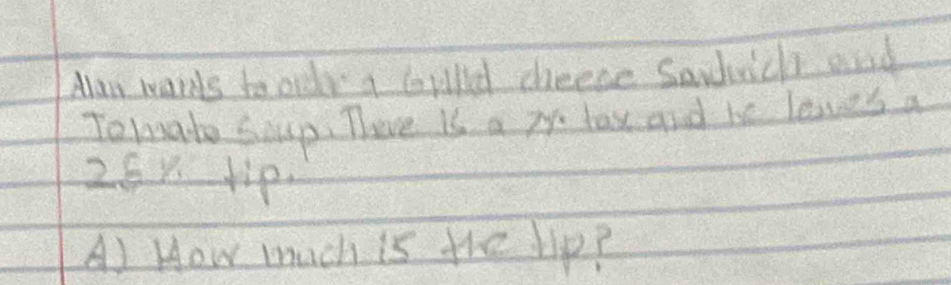 Alan wants to order a Grilled cheese Sandwich and
Tomato Soup. There is a 7% tax and he leaves a
25% tip.
A) How much is the tip?